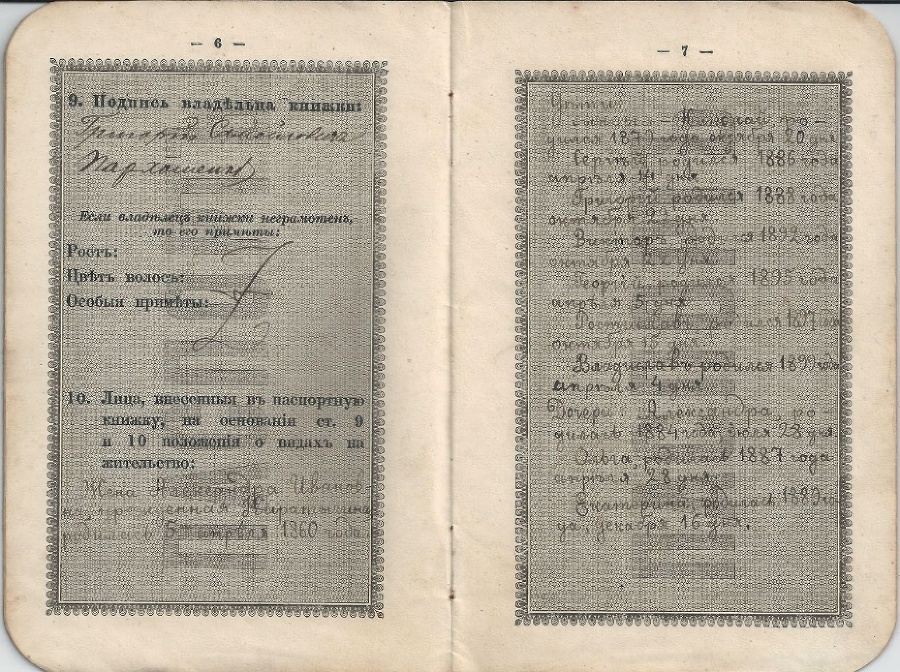 — 6 —
9. Подпись владѣльца книжки:
Григорій Самойловичъ
Пархоменко
Если владѣлецъ книжки неграмотенъ,
то его примѣты:
Ростъ:
Цвѣтъ волосъ:
Особыя примѣты:
10. Лица, внесенныя въ паспортную
книжку, на основаніи ст. 9
и 10 положенія о видахъ на
жительство:
Жена Александра Иванов
на, урожденная
родилась 5 апрѣля 1860 года.
— 7 —
Дѣти:
сыновья – Николай ро-
дился года октября 20 дня
Сергѣй родился 1886 года
апрѣля дня
Григорій родился 1888 года
октября дня
Викторъ родился 1892 года
октября 22 дня
Георгій родился 1895 года
апрѣля 5 дня
Ростиславъ родился 1897 года
октября дня
Владиславъ родился 1899 года
апрѣля 4 дня
Дочери: Александра, ро-
дилась 1884 года іюля 28 дня.
Ольга, родилась 1887 года
апрѣля 28 дня;
Екатерина, родилась 1889 го-
да, декабря 16 дня.